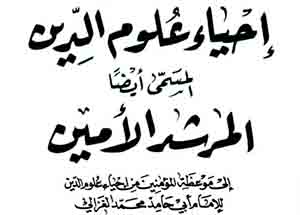 إحياء علوم الدين
المسمى أيضًا
المرشد الأمين
إلى موعظة المؤمنين من إحياء علوم الدين
للإمام أبي حامد محمد الغزالي